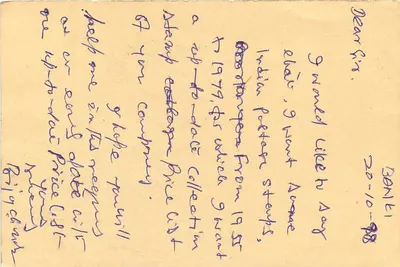 BANKI
20-10-98
Dear Sir.
I would like to say
that, I want some
Indian postage stamps,
from 1955
to 1979, for which I want
a up-to-date collection
stamp Price list
of your company.
I hope you will
help me in this regards
as or send
me up-to-date Price list
yours